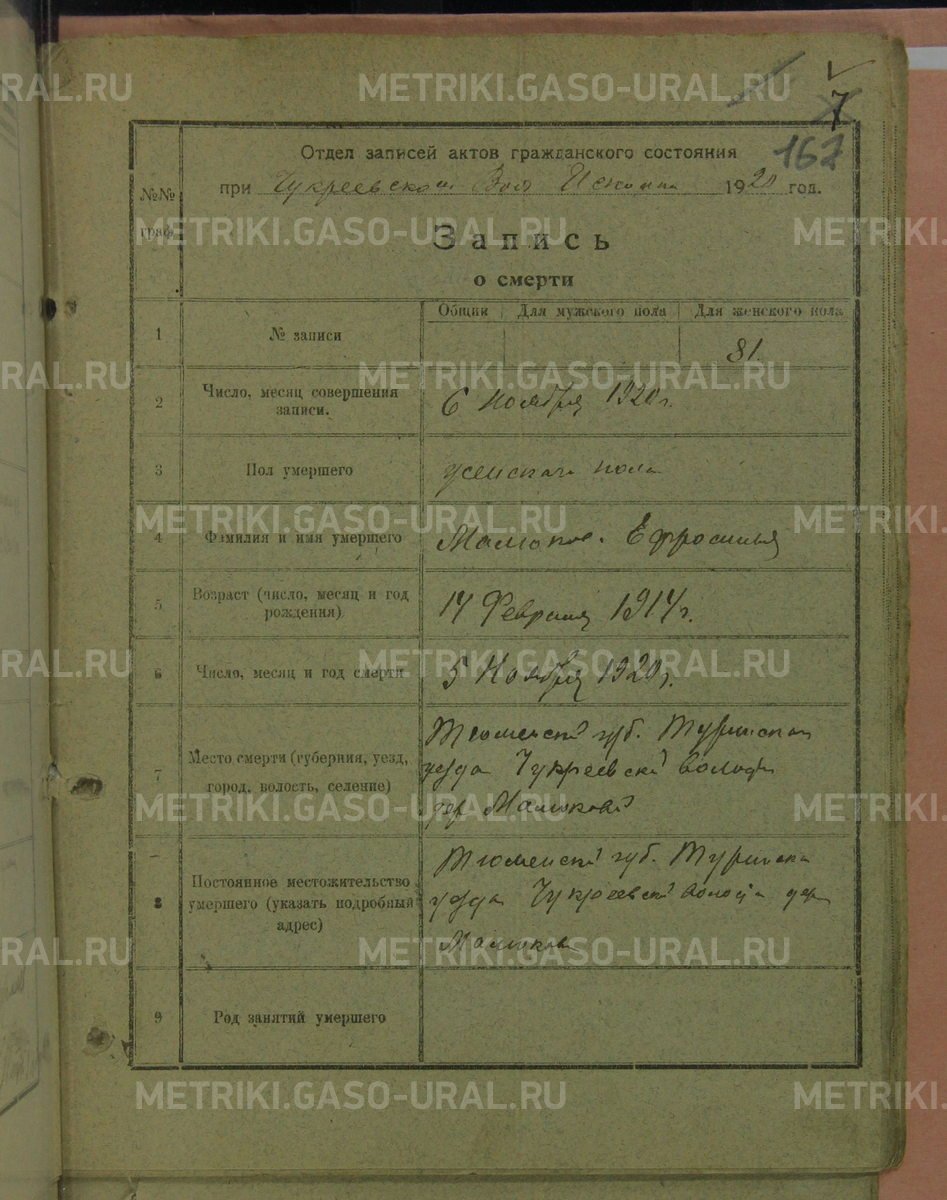 7
167
Отдел записей актов гражданского состояния
при Чукреевском Вол Исполн 1920 год.
№№ граф.
Запись
о смерти
Общий Для мужского пола Для женского пола
1 № записи 81.
2 Число, месяц совершения записи. 6 Ноября 1920 г.
3 Пол умершего женскаго пола
4 Фамилия и имя умершего Ефросинья
5 Возраст (число, месяц и год рождения) 17 Февраля 1917 г.
6 Число, месяц и год смерти 5 Ноября 1920 г.
7 Место смерти (губерния, уезд, город, волость, селение) Тюменской губ. Туринскаго
уезда Чукреевской волости
дер
8 Постоянное местожительство умершего (указать подробный адрес) Тюменской губ. Туринскаго
уезда Чукреевской волости дер
9 Род занятий умершего
METRIKI.GASO-URAL.RU